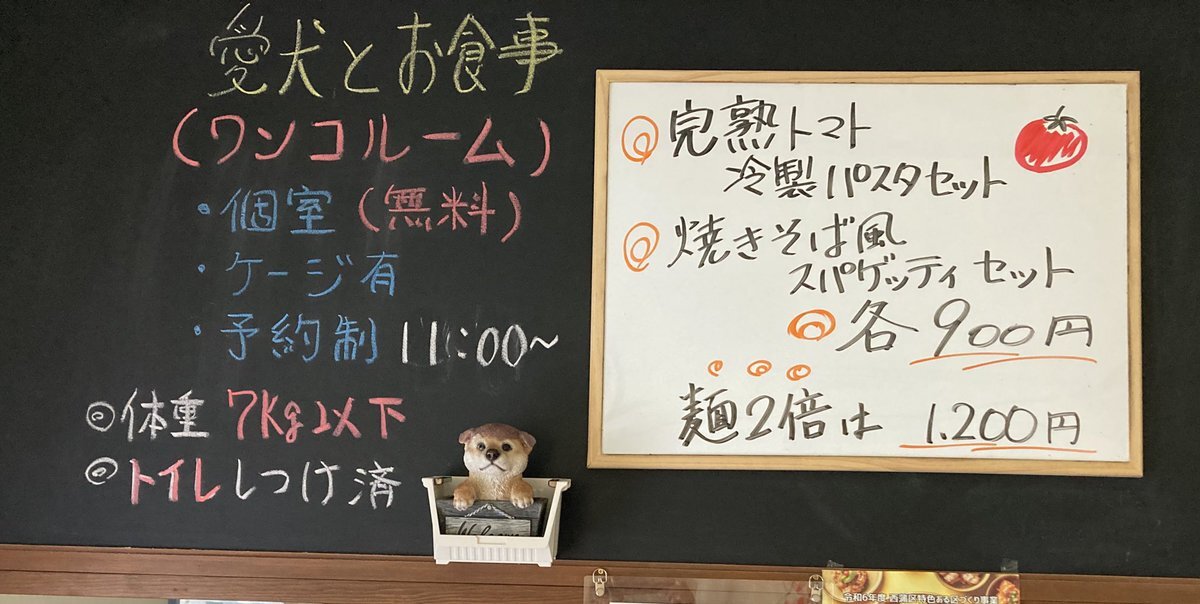 愛犬とお食事
(ワンコルーム)
・個室(無料)
・ケージ有
・予約制 11:00~
◎体重 7Kg以下
◎トイレしつけ済
Welcome
◎完熟トマト
冷製パスタセット
◎焼きそば風
スパゲッティセット
◎各900円
麺2倍は 1.200円
令和6年度 西蒲区特色ある区づくり事業